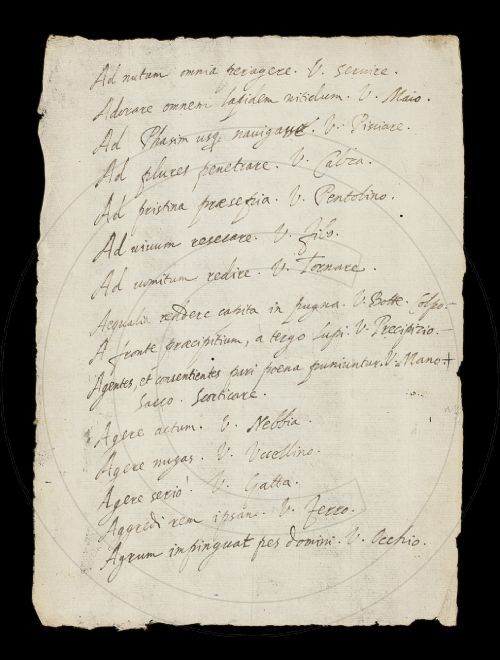 Ad nutum omnia peragere. V. Servire.
Adorare omnem lapidem nitidum. V. Maio.
Ad Phasim usq. navigasse. V. Pisciare.
Ad plures penetrare. V. Cabra.
Ad pristina præsepia. V. Pentolino.
Ad vivum resecare. V. filo.
Ad vomitum redire. V. Tornare.
Aequalia reddere capita in pugna. V. Botte. Colpo.
A fronte præcipitium, a tergo lupi. V. Precipizio.
Agentes, et consentientes pari poena puniuntur. V. Mano +
Sacco. Scorticare.
Agere actum. V. Nebbia.
Agere nugas. V. Uccellino.
Agere serió. V. Gatta.
Aggredi rem ipsam. V. Ferro.
Agrum impinguat pes domini. V. Occhio.